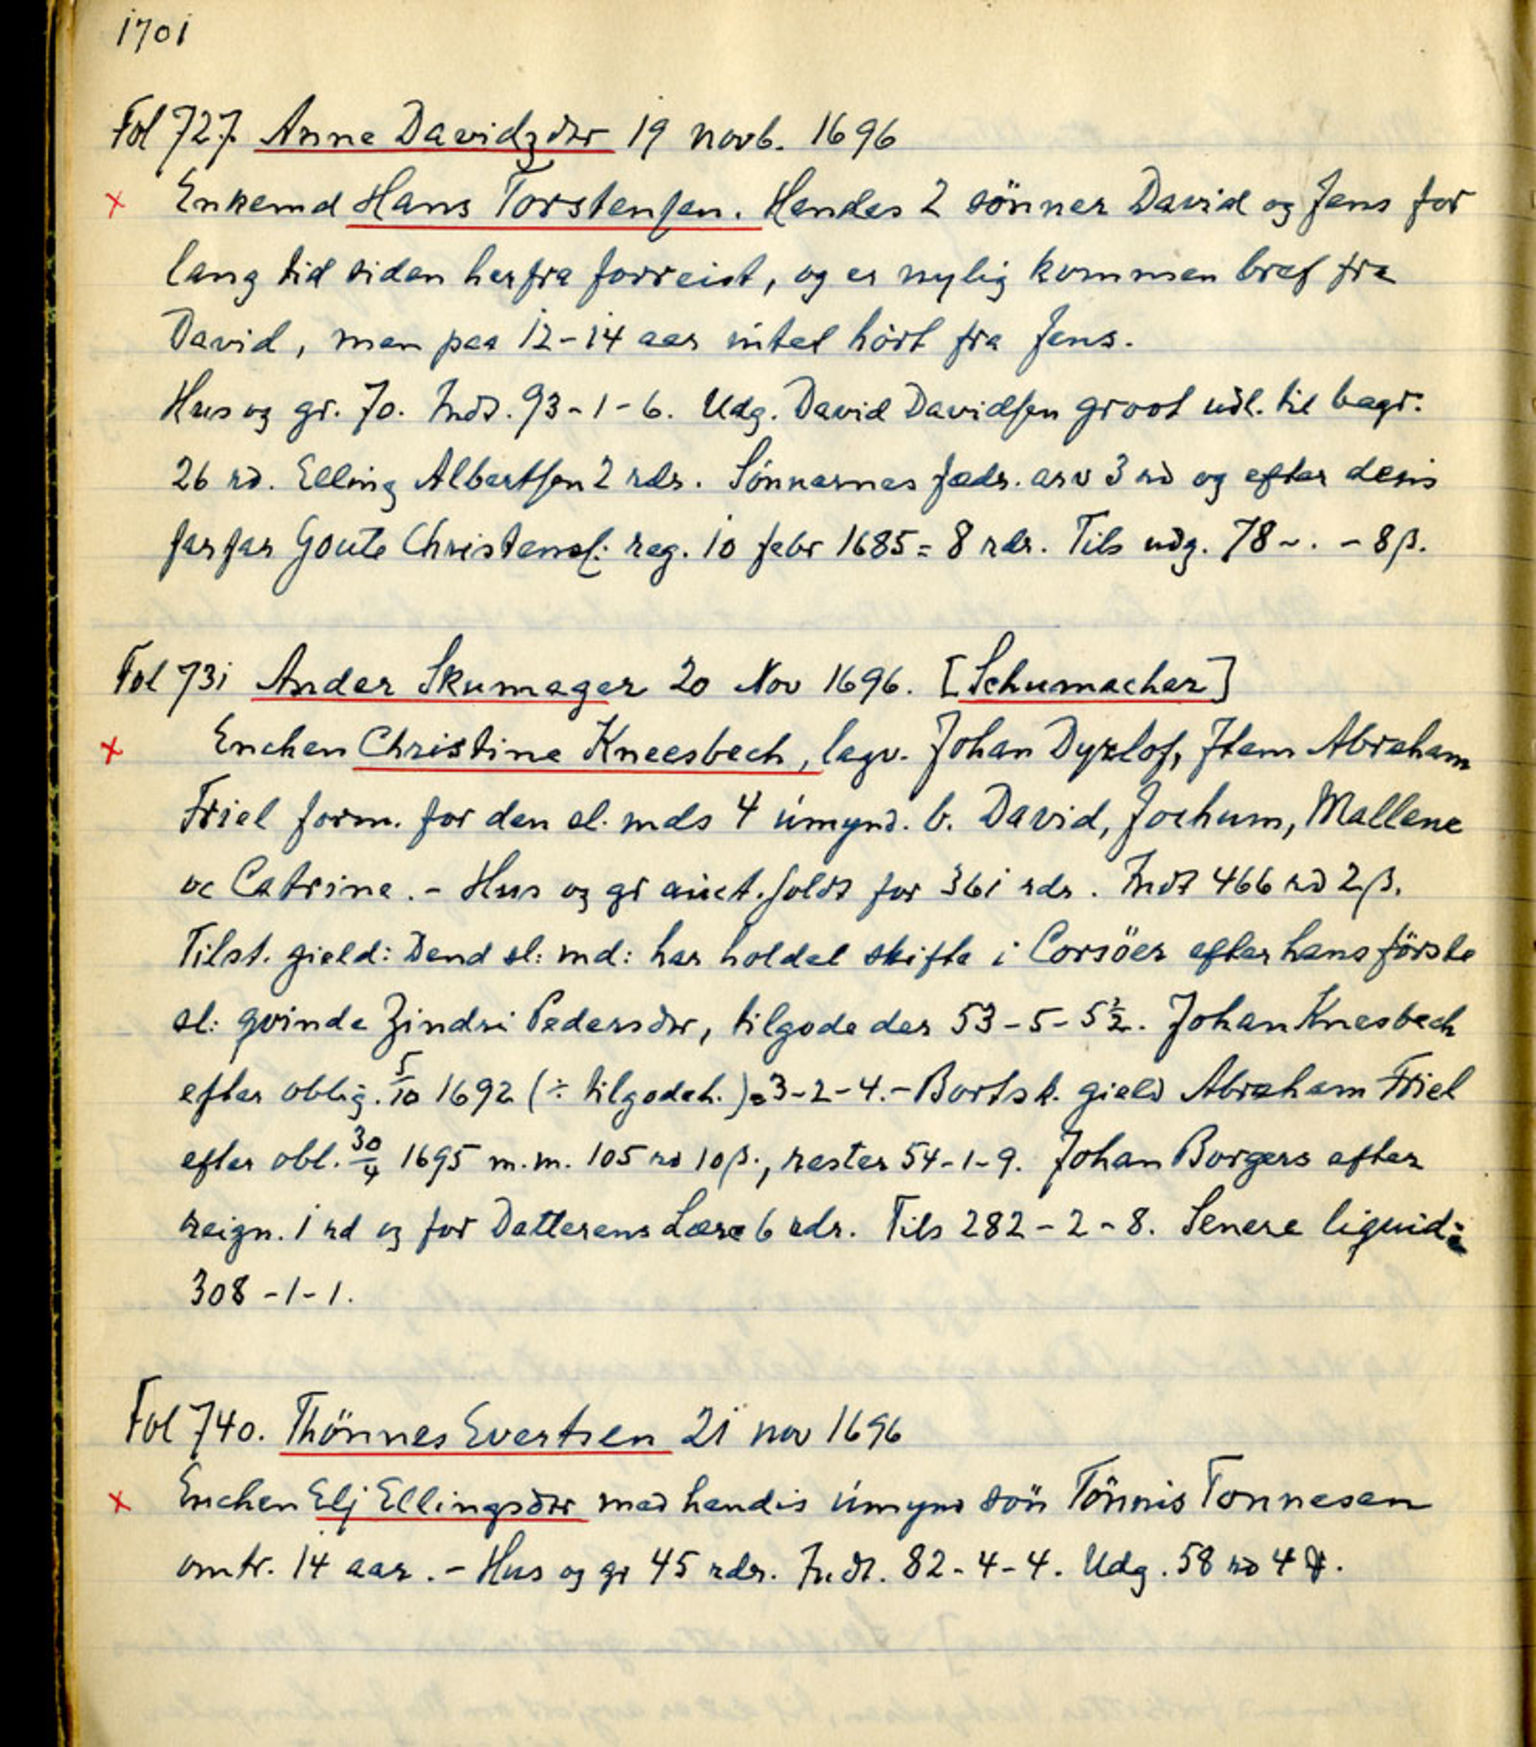 1701
Fol 727. Anne Davidzdtr 19 novb. 1696
x Enkemd Hans Torstensen. Hendes 2 sönner David og Jens for
lang tid siden herfra forreist, og er nylig kommen bref fra
David, men paa 12-14 aar intet hört fra Jens.
Hus og gr. 70. Indt. 93-1-6. Udg. David Davidsen groot udl. til begr.
26 rd. Elling Albertsen 2 rdr. Sönnernes fædr. arv 3 rd og efter deris
farfar Goute Christens: reg. 10 febr 1685 = 8 rdr. Tils udg. 78 ~ . - 8 β.
Fol 731 Ander Skumager 20 Nov 1696. [Schumacher]
x Enchen Christine Kneesbech, lagv. Johan Dyrlof, Item Abraham
Friel form. for den sl. mds 4 umynd. b. David, Jochum, Mallene
oc Catrine. - Hus og gr auct. soldt for 361 rdr. Indt 466 rd 2 β.
Tilst. gield: Dend sl: md: har holdet skifte i Corsöer efter hans förste
sl: qvinde Zindri Pedersdtr, tilgode der 53-5-5½. Johan Knesbech
efter oblig. 5/10 1692 (÷ tilgodeh.) 3-2-4. - Bortsk. gield Abraham Friel
efter obl. 30/4 1695 m.m. 105 rd 10 β., rester 54-1-9. Johan Borgers efter
reign. 1 rd og for Datterens Lære 6 rdr. Tils 282-2-8. Senere liquid:
308-1-1.
Fol 740. Thönnes Evertsen 21 nov 1696
x Enchen Elj Ellingsdtr med hendis umynd sön Tönnis Tonnesen
omtr. 14 aar. - Hus og gr 45 rdr. Indt. 82-4-4. Udg. 58 rd 4